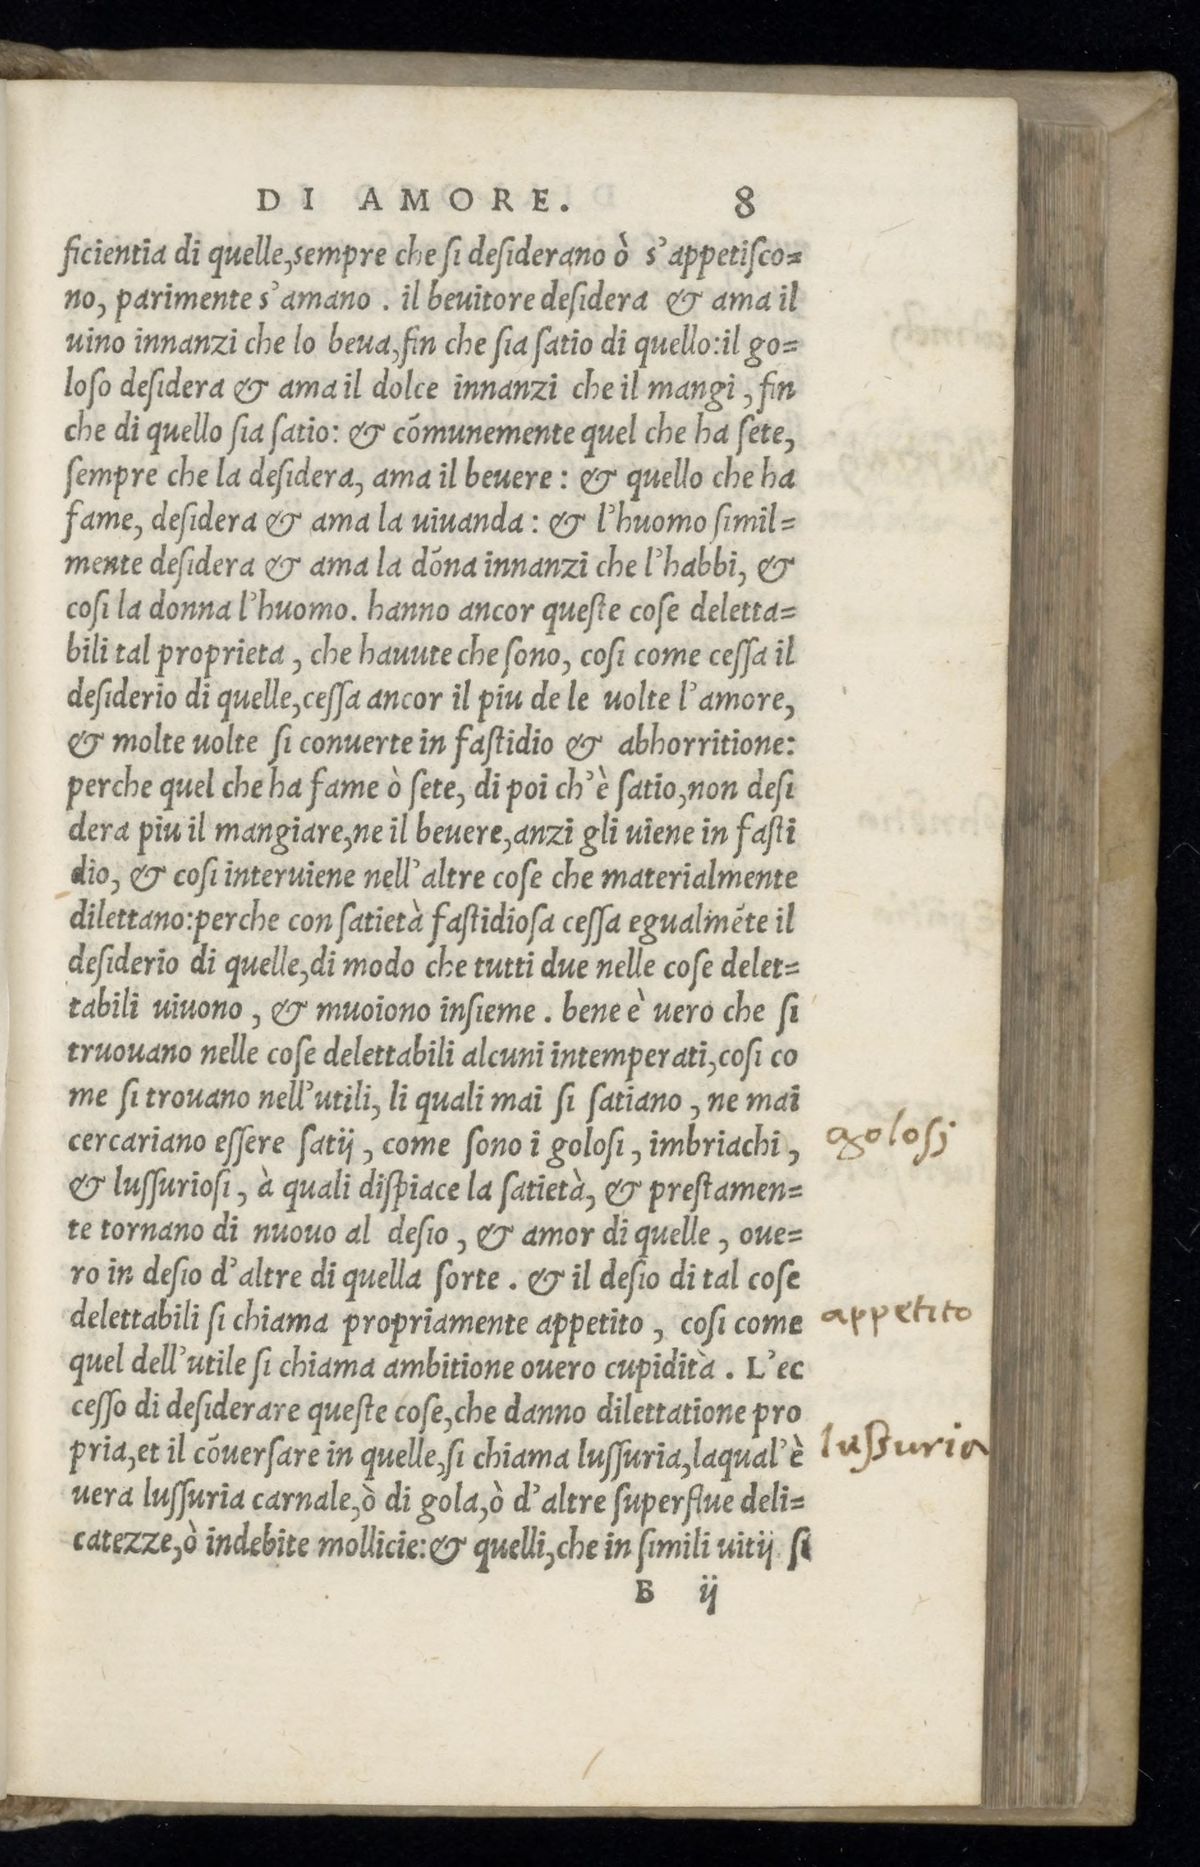 DI AMORE. 8
ficientia di quelle,sempre che si desiderano ò s'appetisco=
no, parimente s'amano . il beuitore desidera & ama il
uino innanzi che lo beua,fin che sia satio di quello:il go=
loso desidera & ama il dolce innanzi che il mangi , fin
che di quello sia satio: & cōmunemente quel che ha sete,
sempre che la desidera, ama il beuere : & quello che ha
fame, desidera & ama la uiuanda : & l'huomo simil=
mente desidera & ama la dōna innanzi che l'habbi, &
cosi la donna l'huomo. hanno ancor queste cose deletta=
bili tal proprieta , che hauute che sono, cosi come cessa il
desiderio di quelle,cessa ancor il piu de le uolte l'amore,
& molte uolte si conuerte in fastidio & abhorritione:
perche quel che ha fame ò sete, di poi ch'è satio,non desi
dera piu il mangiare,ne il beuere,anzi gli uiene in fasti
dio, & cosi interuiene nell'altre cose che materialmente
dilettano:perche con satietà fastidiosa cessa egualmēte il
desiderio di quelle,di modo che tutti due nelle cose delet=
tabili uiuono , & muoiono insieme . bene è uero che si
truouano nelle cose delettabili alcuni intemperati,cosi co
me si trouano nell'utili, li quali mai si satiano , ne mai
cercariano essere satij , come sono i golosi , imbriachi ,
golosi
& lussuriosi , à quali dispiace la satietà, & prestamen=
te tornano di nuouo al desio , & amor di quelle , oue=
ro in desio d'altre di quella sorte . & il desio di tal cose
delettabili si chiama propriamente appetito , cosi come
appetito
quel dell'utile si chiama ambitione ouero cupidità . L'ec
cesso di desiderare queste cose,che danno dilettatione pro
pria,et il cōuersare in quelle,si chiama lussuria,laqual'è
lussuria
uera lussuria carnale,ò di gola,ò d'altre superflue deli=
catezze,ò indebite mollicie:& quelli,che in simili uitij si
B ij